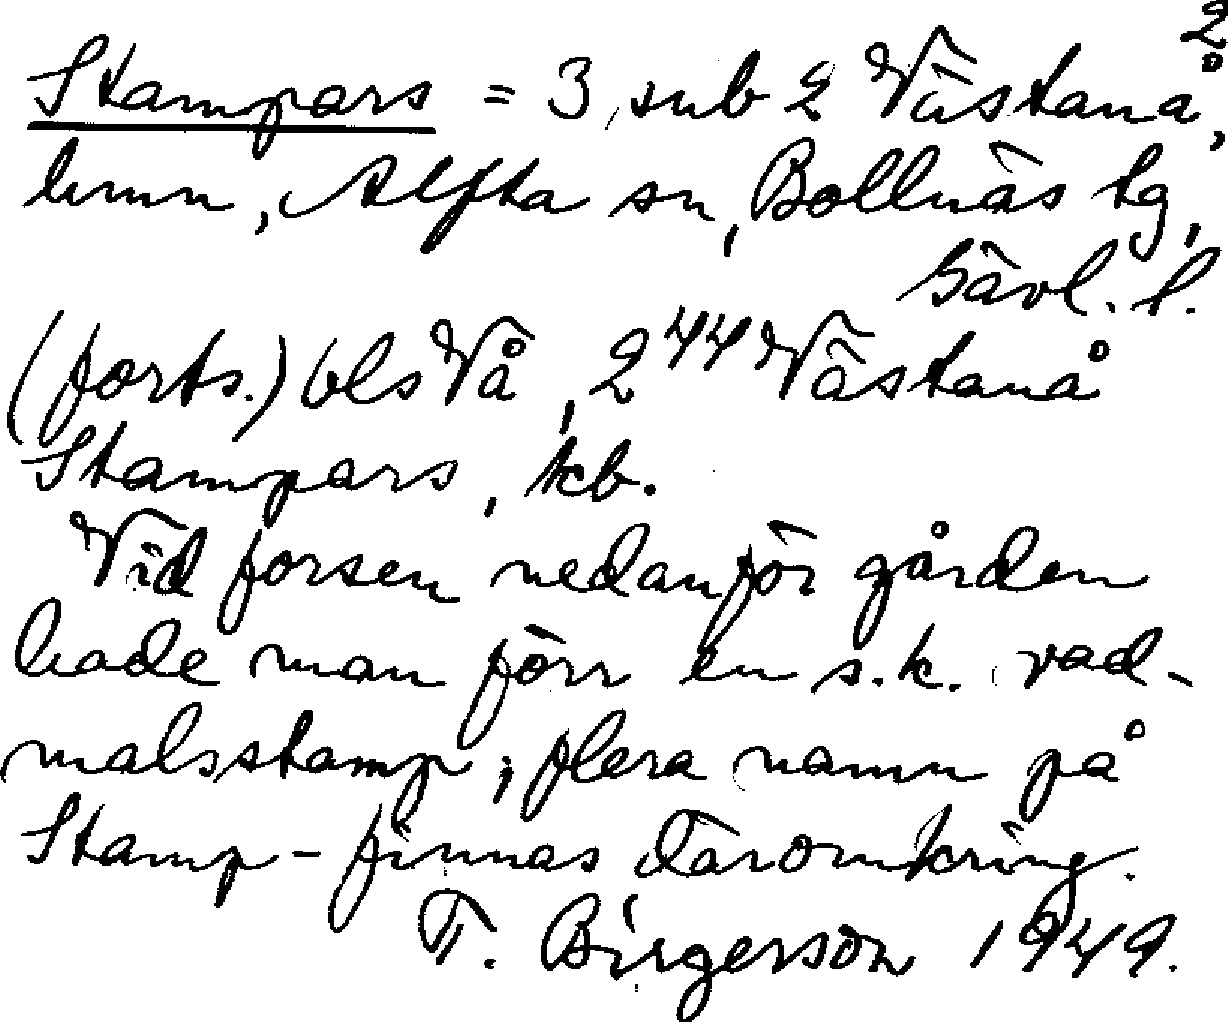 2
Stampars = 3 sub 2 Västanå,
hmn, Alfta sn, Bollnäs tg,
Gävl. l.
(forts.) bls Vå, 2⁴⁴ Västanå
Stampars, kb.
Vid forsen nedanför gården
hade man förr en s.k. vad-
malsstamp; flera namn på
Stamp- finnas däromkring.
T. Birgerson 1949.